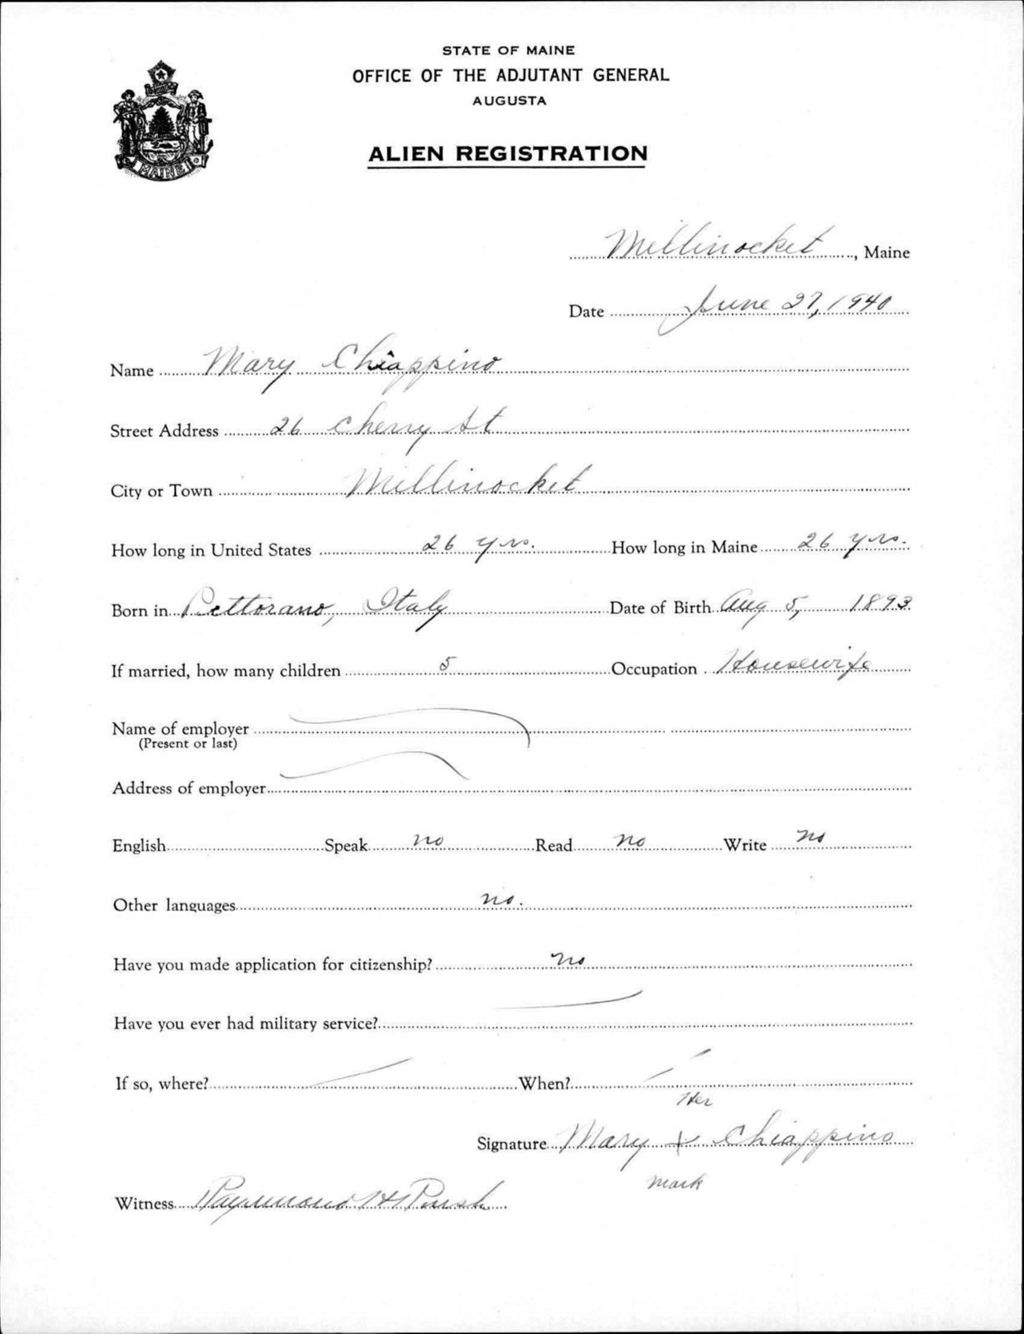 STATE OF MAINE
OFFICE OF THE ADJUTANT GENERAL
AUGUSTA
ALIEN REGISTRATION
MAINE
Millinocket, Maine
Date June 27, 1940
Name Mary Chiappino
Street Address 26 Cherry St
City or Town Millinocket
How long in United States 26 yrs. How long in Maine 26 yrs.
Born in Pettorano, Italy Date of Birth Aug 5, 1893
If married, how many children 5 Occupation Housewife
Name of employer
(Present or last)
Address of employer
English Speak no Read no Write no
Other languages no.
Have you made application for citizenship? no
Have you ever had military service?
If so, where? When?
Her
Signature Mary x Chiappino
mark
Witness Raymond H